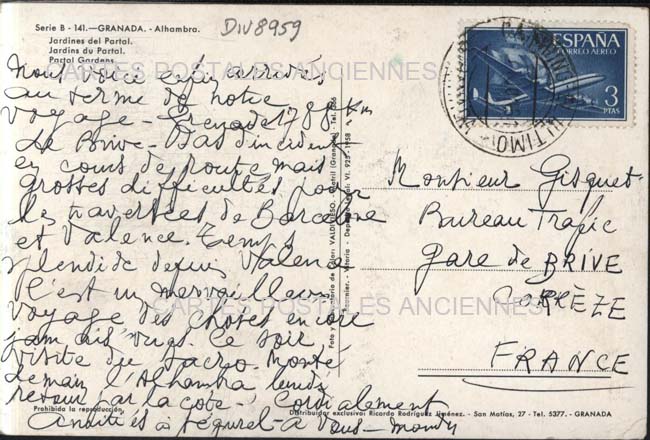 Serie B - 141.—GRANADA. - Alhambra.
Jardines del Partal.
Jardins du Partal.
Partal Gardens.
DIV8959
ESPAÑA
CORREO AEREO
3
PTAS
CARTES POSTALES ANCIENNES
Nous voici enfin arrivés
au terme de notre
voyage - Grenade 1788 Km
de Brive - Pas d'incident
en cours de route mais
grosses difficultés pour
les traversées de Barcelone
et Valence. Temps
splendide depuis Valence
C'est un merveilleux
voyage des choses encore
jamais vues. Ce soir
visite du Sacro-Monte
demain l'Alhambra lundi
retour par la côte. Cordialement
Amitiés à à Vous -
Monsieur Gisquet
Bureau Trafic
Gare de BRIVE
CORRÈZE
FRANCE
CARTES POSTALES ANCIENNES
Prohibida la reproducción
Distribuidor exclusivo: Ricardo Rodríguez Jiménez. - San Matías, 27 - Tel. 5377. - GRANADA